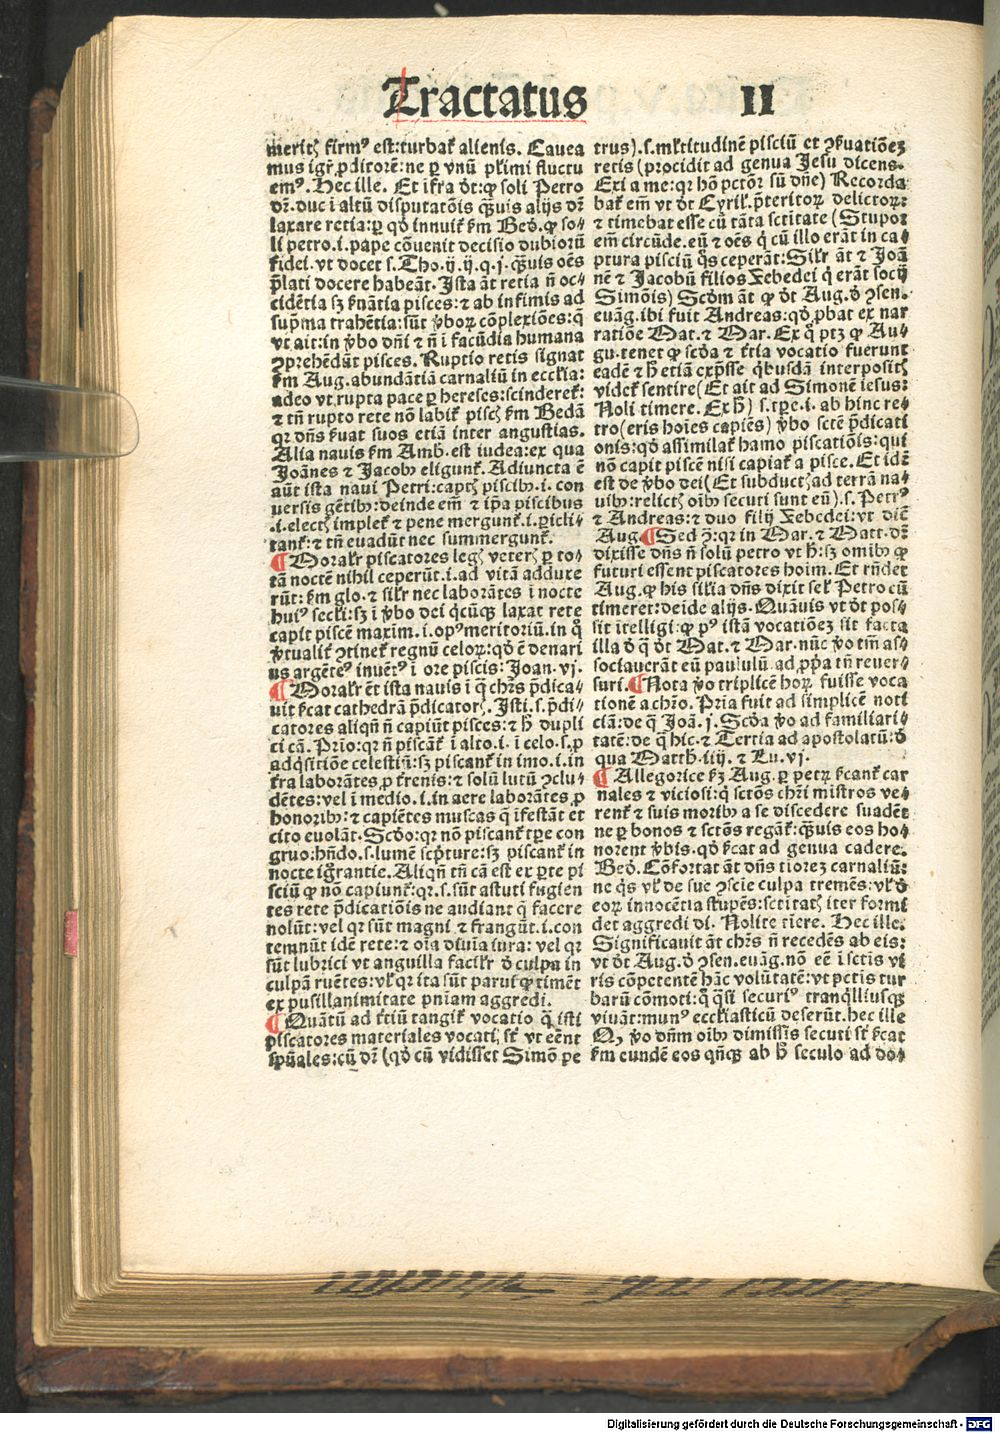 Tractatus II
meritꝭ firmꝰ est: turbat᷑ alienis. Cauea
mus igr̃ ꝓditorē: ne ꝑ vnū pl̓imi fluctu
emꝰ. Hec ille. Et ifra dt̓: ꝙ soli Petro
dr̄. duc i altū disputatōis q̄ꝫuis alijs dr̄
laxare retia: ꝑ qd̓ innuit᷑ ẜm Bed̓. ꝙ so⸗
li petro .i. pape cōuenit decisio dubiorū
fidei. vt docet s. Tho. ij. ij. q. j. q̄ꝫuis oēs
p̄lati docere habeāt. Ista āt retia nō oc⸗
cidētia sꝫ ẜuātia pisces: ⁊ ab infimis ad
sup̄ma trahētia: sūt v̓boꝝ cōplexiōes: q̄
vt ait: in v̓bo dn̄i ⁊ nō i facūdia humana
ꝯprehēdūt pisces. Ruptio retis signat
ẜm Aug. abundātiā carnaliū in eccl̓ia:
adeo vt rupta pace ꝑ hereses: scinderet᷑:
⁊ tn̄ rupto rete nō labit᷑ piscꝭ ẜm Bedā
qꝛ dn̄s ẜuat suos etiā inter angustias.
Alia nauis ẜm Amb. est iudea: ex qua
Joānes ⁊ Jacobꝰ eligunt᷑. Adiuncta ē
aūt ista naui Petri: captꝭ piscibꝰ .i. con
uersis gētibꝰ: deinde em̄ ⁊ ip̄a piscibus
.i. electꝭ implet᷑ ⁊ pene mergunt᷑ .i. ꝑicli⸗
tant᷑: ⁊ tn̄ euadūt nec summergunt᷑.
¶ Moralr̓ piscatores legꝭ veterꝭ ꝑ to⸗
tā noctē nihil ceperūt .i. ad vitā adduxe
rūt: ẜm glo. ⁊ silr̓ nec laborātes i nocte
huiꝰ secl̓i: sꝫ i v̓bo dei q̇cūqꝫ laxat rete
capit piscē maxim̄ .i. opꝰ meritoriū. in q̊
v̓tualit᷑ ꝯtinet᷑ regnū celoꝝ: qd̓ ē denari
us argēteꝰ inuētꝰ i ore piscis: Joan. vj.
¶ Moralr̓ ēt ista nauis i q̄ chr̄s p̄dica⸗
uit ẜcat cathedrā p̄dicatoꝝ. Isti .s. p̄di⸗
catores aliqn̄ nō capiūt pisces: ⁊ hͦ dupli
ci cā. Prīo: qꝛ nō piscāt᷑ i alto .i. i celo .s. ꝓ
adq̇sitiōe celestiū: sꝫ piscant᷑ in imo .i. in
fra laborātes, ꝓ t᷑renis: ⁊ solū lutū ꝯclu⸗
dētes: vel i medio .i. in aere laborātes, ꝓ
honoribꝰ: ⁊ capiētes muscas q̄ ifestāt et
cito euolāt. Scd̓o: qꝛ nō piscant᷑ tp̄e con
gruo: hn̄do .s. lumē scp̄ture: sꝫ piscant᷑ in
nocte ignorantie. Aliqn̄ tn̄ cā est ex ꝑte pi
sciū ꝙ nō capiunt᷑: qꝛ .s. sūt astuti fugien
tes rete p̄dicatiōis ne audiant q̄ facere
nolūt: vel qꝛ sūt magni ⁊ frangūt .i. con
temnūt idē rete: ⁊ oīa diuia iura: vel qꝛ
sūt lubrici vt anguilla facilr̓ d̓ culpa in
culpā ruētes: vl̓ qꝛ ita sūt parui ꝙ timēt
ex pusillanimitate pn̄iam aggredi.
¶ Quātū ad t᷑tiū tangit᷑ vocatio q̄ isti
piscatores materiales vocati, st᷑ vt eēnt
sp̄uales: cū dr̄ (qd̓ cū vidisset Simō pe
trus) .s. ml̓titudinē pisciū et ꝯẜuatiōeꝫ
retis (procidit ad genua Jesu dicens.
Exi a me: qꝛ hō pctōr sū dn̄e) Recorda
bat᷑ em̄ vt dt̓ Cyril̓. p̄teritoꝝ delictoꝝ:
⁊ timebat esse cū tāta sctitate (Stupor
em̄ circūde. eū ⁊ oēs q̇ cū illo erāt in ca⸗
ptura pisciū q̊s ceperāt: Silr̓ āt ⁊ Joā
nē ⁊ Jacobū filios Zebedei q̇ erāt socij
Simōis) Scd̓m āt ꝙ dt̓ Aug. d̓ ꝯsen.
euāg. ibi fuit Andreas: qd̓ ꝓbat ex nar
ratiōe Mat. ⁊ Mar. Ex q̊ ptꝫ ꝙ Au⸗
gu. tenet ꝙ scd̓a ⁊ t᷑tia vocatio fuerunt
eadē ⁊ hͦ etiā exp̄sse q̇busdā interpositꝭ
videt᷑ sentire (Et ait ad Simonē iesus:
Noli timere. Ex hͦ) .s. tp̄e .i. ab hinc re⸗
tro (eris hoīes capiēs) v̓bo sctē p̄dicati
onis: qd̓ assimilat᷑ hamo piscatiōis: qui
nō capit piscē nisi capiat᷑ a pisce. Et idē
est de v̓bo dei (Et subductꝭ ad terrā na
uibꝰ: relictꝭ oībꝰ secuti sunt eū) .s. Petrꝰ
⁊ Andreas: ⁊ duo filij Zebedei: vt dic̄
Aug. ¶ Sed q̄: qꝛ in Mar. ⁊ Matt. dr̄
dixisse dn̄s nō solū petro vt hͦ: sꝫ omībꝰ ꝙ
futuri essent piscatores hoīm. Et rn̄det
Aug. ꝙ his sil̓ia dn̄s dixit sel̓ Petro cū
timeret: deīde alijs. Quāuis vt dt̓ pos⸗
sit ītelligi: ꝙ pꝰ istā vocatiōeꝫ sit facta
illa d̓ q̄ dt̓ Mat. ⁊ Mar. nūc v̓o tm̄ as⸗
sociauerāt eū paululū ad ꝓpa tn̄ reuer⸗
suri. ¶ Nota v̓o triplicē hoꝝ fuisse voca
tionē a chr̄o. Prīa fuit ad simplicē noti
ciā: de q̄ Joā. j. Scd̓a v̓o ad familiari⸗
tatē: de q̄ hic. ⁊ Tertia ad apostolatū: d̓
qua Matth. iiij. ⁊ Lu. vj.
¶ Allegorice ẜꝫ Aug. ꝑ petꝝ ẜcant᷑ car
nales ⁊ viciosi: q̇ sctōs chr̄i mīstros ve⸗
rent᷑ ⁊ suis moribꝰ a se discedere suadēt
ne ꝑ bonos ⁊ sctōs regāt᷑: q̄ꝫuis eos ho⸗
norent v̓bis. qd̓ ẜcat ad genua cadere.
Bed̓. Cōfortat āt dn̄s tīoreꝫ carnaliū:
ne q̇s vl̓ de sue ꝯscīe culpa tremēs: vl̓ d̓
eoꝝ innocētia stupēs: sctitatꝭ iter formi
det aggredi di. Nolite tīere. Hec ille.
Significauit āt chr̄s nō recedēs ab eis:
vt dt̓ Aug. d̓ ꝯsen. euāg. nō eē i sctis vi
ris cōpetentē hāc volūtatē: vt pctis tur
barū cōmoti: q̊ q̄si securiꝰ tranq̇lliusqꝫ
viuāt: munꝰ eccl̓iasticū deserūt. hec ille
Qꝭ v̓o dn̄m oībꝰ dimissis secuti st᷑ ẜcat
ẜm eundē eos qn̄qꝫ ab hͦ seculo ad do⸗
Digitalisierung gefördert durch die Deutsche Forschungsgemeinschaft - DFG